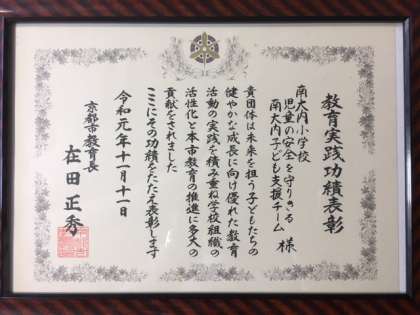 教育実践功績表彰
南大内小学校
児童の安全を守りきる
南大内子ども支援チーム 様
貴団体は未来を担う子どもたちの
健やかな成長に向け優れた教育
活動の実践を積み重ね学校組織の
活性化と本市教育の推進に多大の
貢献をされました
ここにその功績をたたえ表彰します
令和元年十一月十一日
京都市教育長
在田 正秀